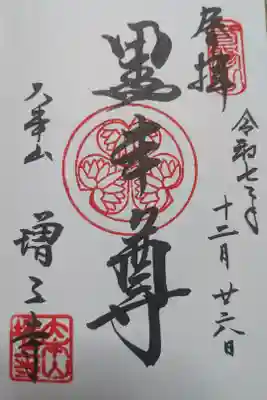 奉拝
令和七年十二月廿六日
黒本尊
大本山
増上寺